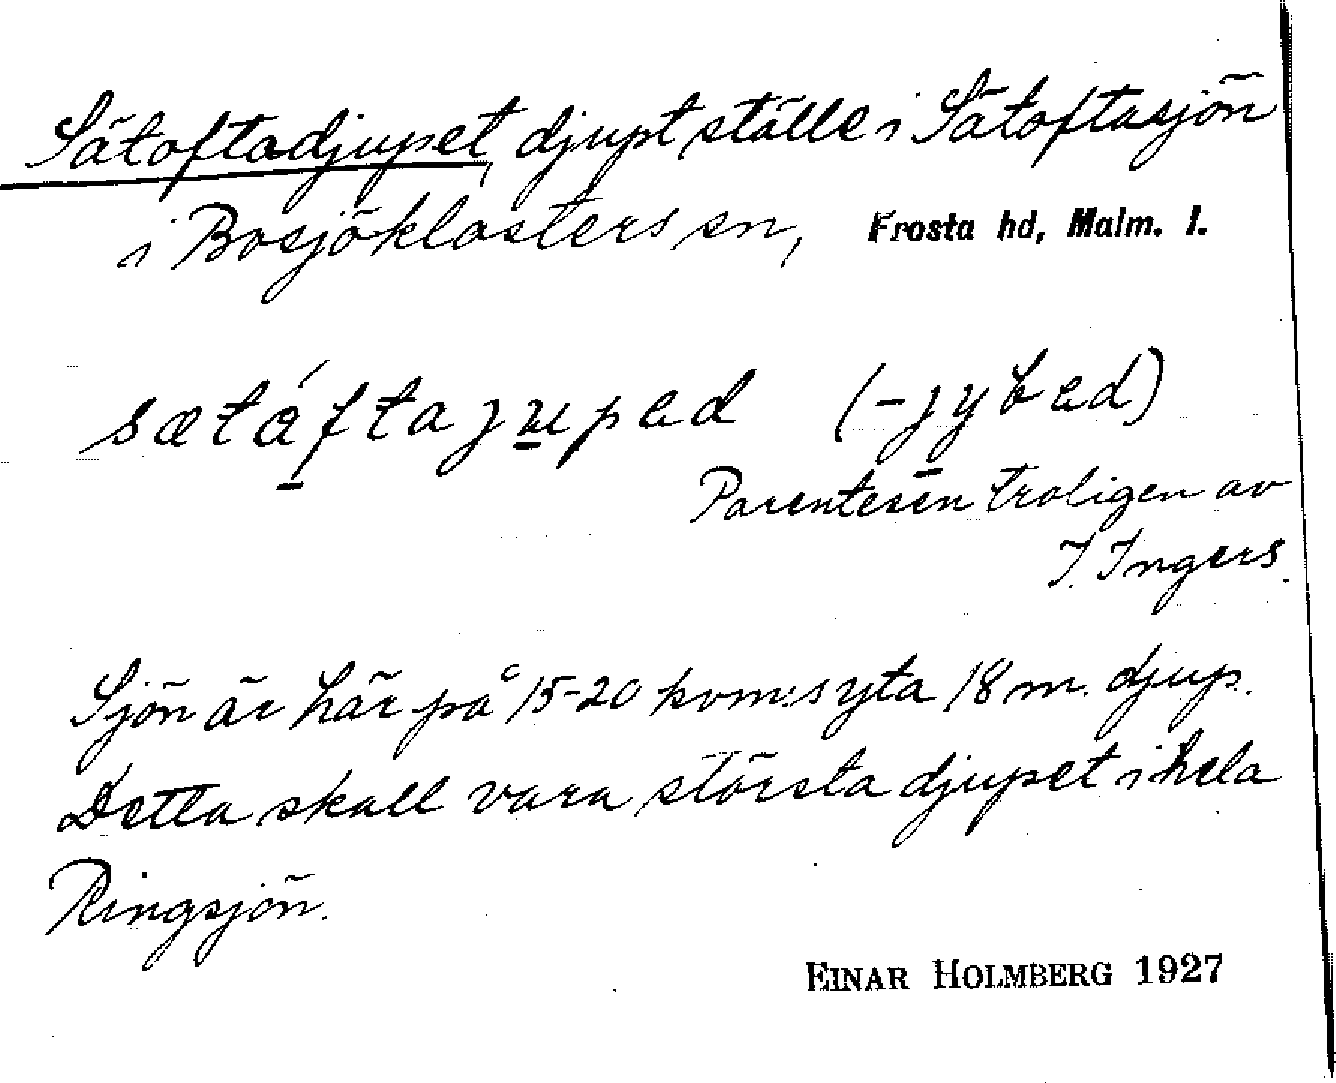 Sätoftadjupet, djupt ställe i Sätoftasjön
i Bosjöklosters sn, Frosta hd, Malm. l.
sætáftajupad (-jybad)
Parentesen troligen av
I. Ingers.
Sjön är här på 15-20 kvm:s yta 18 m. djup.
Detta skall vara största djupet i hela
Ringsjön.
EINAR HOLMBERG 1927